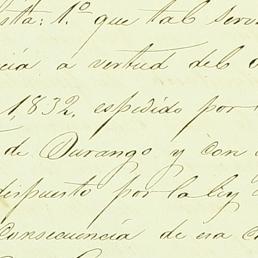 sta: 1.º que tal serv
cia a vertud del
1,832, espedido por
de Durango y con
dispuesto por la ley
consecuencia de esa c